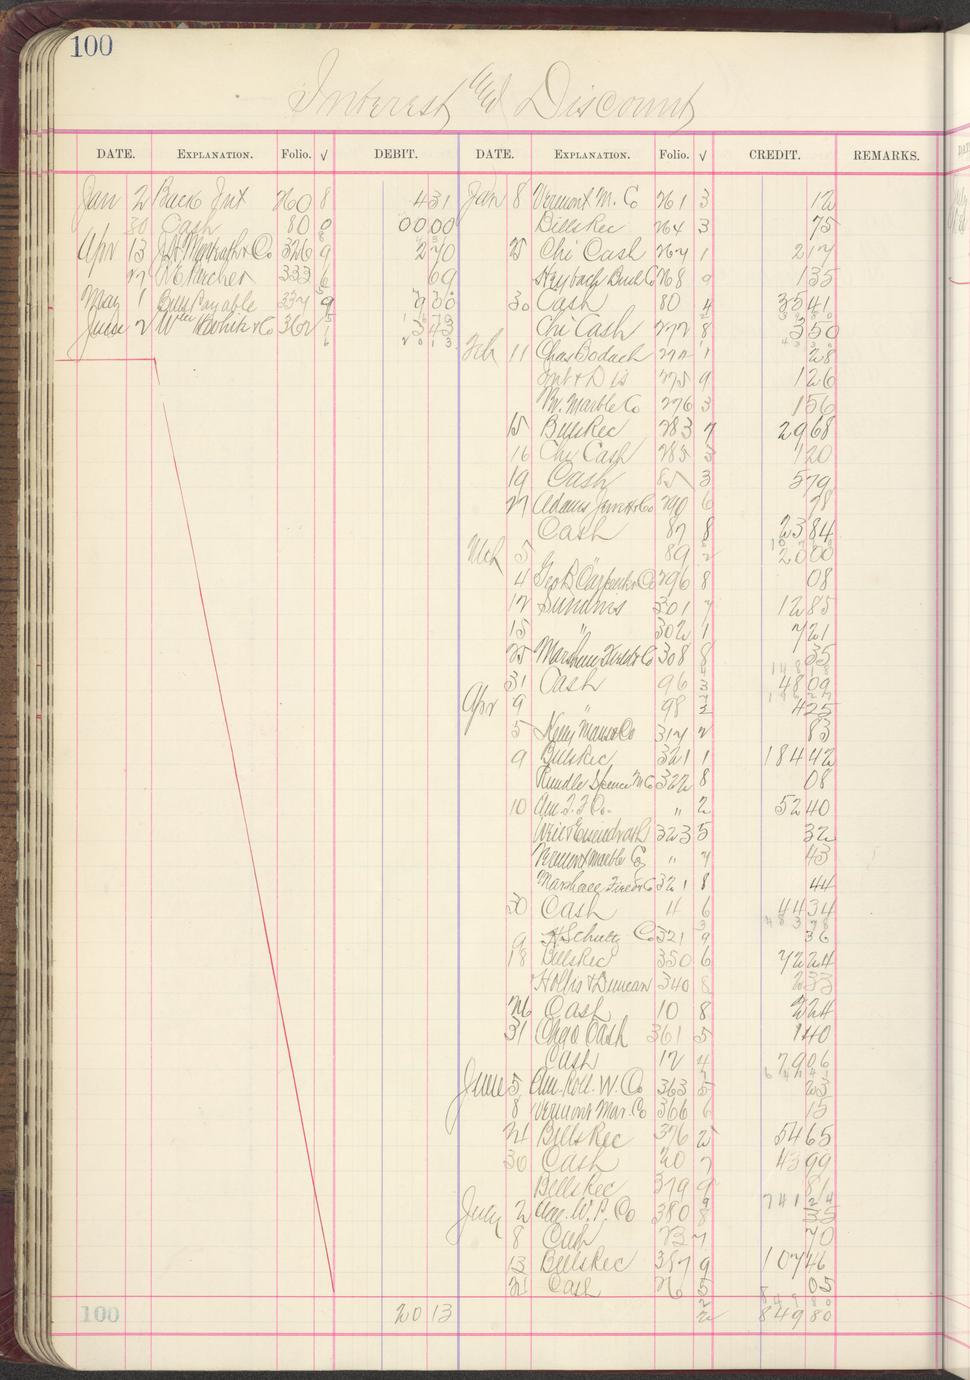 100
Interest and Discount
DATE. EXPLANATION. Folio. √ DEBIT. DATE. EXPLANATION. Folio. √ CREDIT. REMARKS.
Jan 2 Back Int 260 8 4 31
30 Cash 80 0 00 00
Apr 13 Co 326 9 2 70
27 333 6 69
May 1 Bills Payable 337 9 7 30
June 2 Wm & Co 362 5 43
20 13
Jan 8 Vermont M. Co 261 3 12
Bills Rec 264 3 75
25 Chi Cash 267 1 2 17
Co 268 9 1 35
30 Cash 80 4 35 41
Chi Cash 272 8 3 50
Feb 11 Chas Bodach 1 28
Int & Dis 275 9 1 26
Marble Co 276 3 1 56
15 Bills Rec 283 7 29 68
16 Chi Cash 285 3 1 20
19 Cash 85 3 5 79
27 Adams Co 290 6 78
Cash 87 8 23 84
Mch 5 " 89 2 20 00
4 Geo B Carpenter & Co 296 8 08
12 Sundries 301 7 12 85
15 " 302 1 7 21
25 Marshall Field & Co 308 8 35
31 Cash 96 3 48 09
Apr 9 " 98 4 25
5 Co 317 2 83
9 Bills Rec 321 1 184 42
Rundle Spence M Co 322 8 08
10 Am. Co. " 2 52 40
323 5 32
Vermont Marble Co " 7 43
Marshall Field & Co 321 8 44
30 Cash 4 6 44 34
9 H Schultz Co 321 9 36
18 Bills Rec 350 6 72 24
Hollis & Duncan 340 8 2 33
26 Cash 10 8 2 24
31 Chgo Cash 361 5 1 40
Cash 12 4 79 06
June 5 Am. W. Co 363 5 23
8 Vermont Mar. Co 366 6 15
21 Bills Rec 376 2 54 65
30 Cash 20 7 43 99
Bills Rec 379 9 81
741 24
July 2 Am. W. P. Co 380 8 35
8 Cash 23 7 70
13 Bills Rec 387 9 107 46
21 Cash 26 5 05
100 20 13 2 849 80